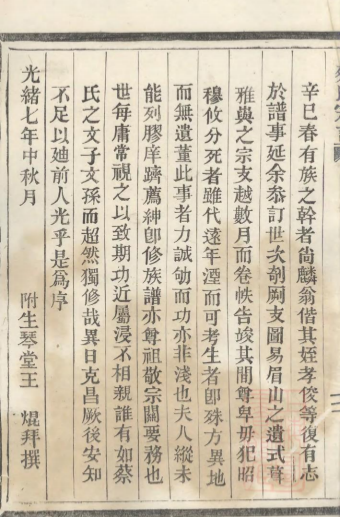 辛巳春有族之幹者尙麟翁偕其姪孝俊等復有志
於譜事延余叅訂世次剞劂支圖易眉山之遺式葺
雅與之宗支越數月而卷帙告竣其間尊卑毋犯昭
穆攸分死者雖代遠年湮而可考生者卽殊方異地
而無遺董此事者力誠劬而功亦非淺也夫人縱未
能列膠庠躋薦紳卽修族譜亦尊祖敬宗關要務也
世每庸常視之以致期功近屬浸不相親誰有如蔡
氏之文子文孫而超然獨修哉異日克昌厥後安知
不足以廸前人光乎是為序
光緒七年中秋月
附生琴堂王 焜拜撰